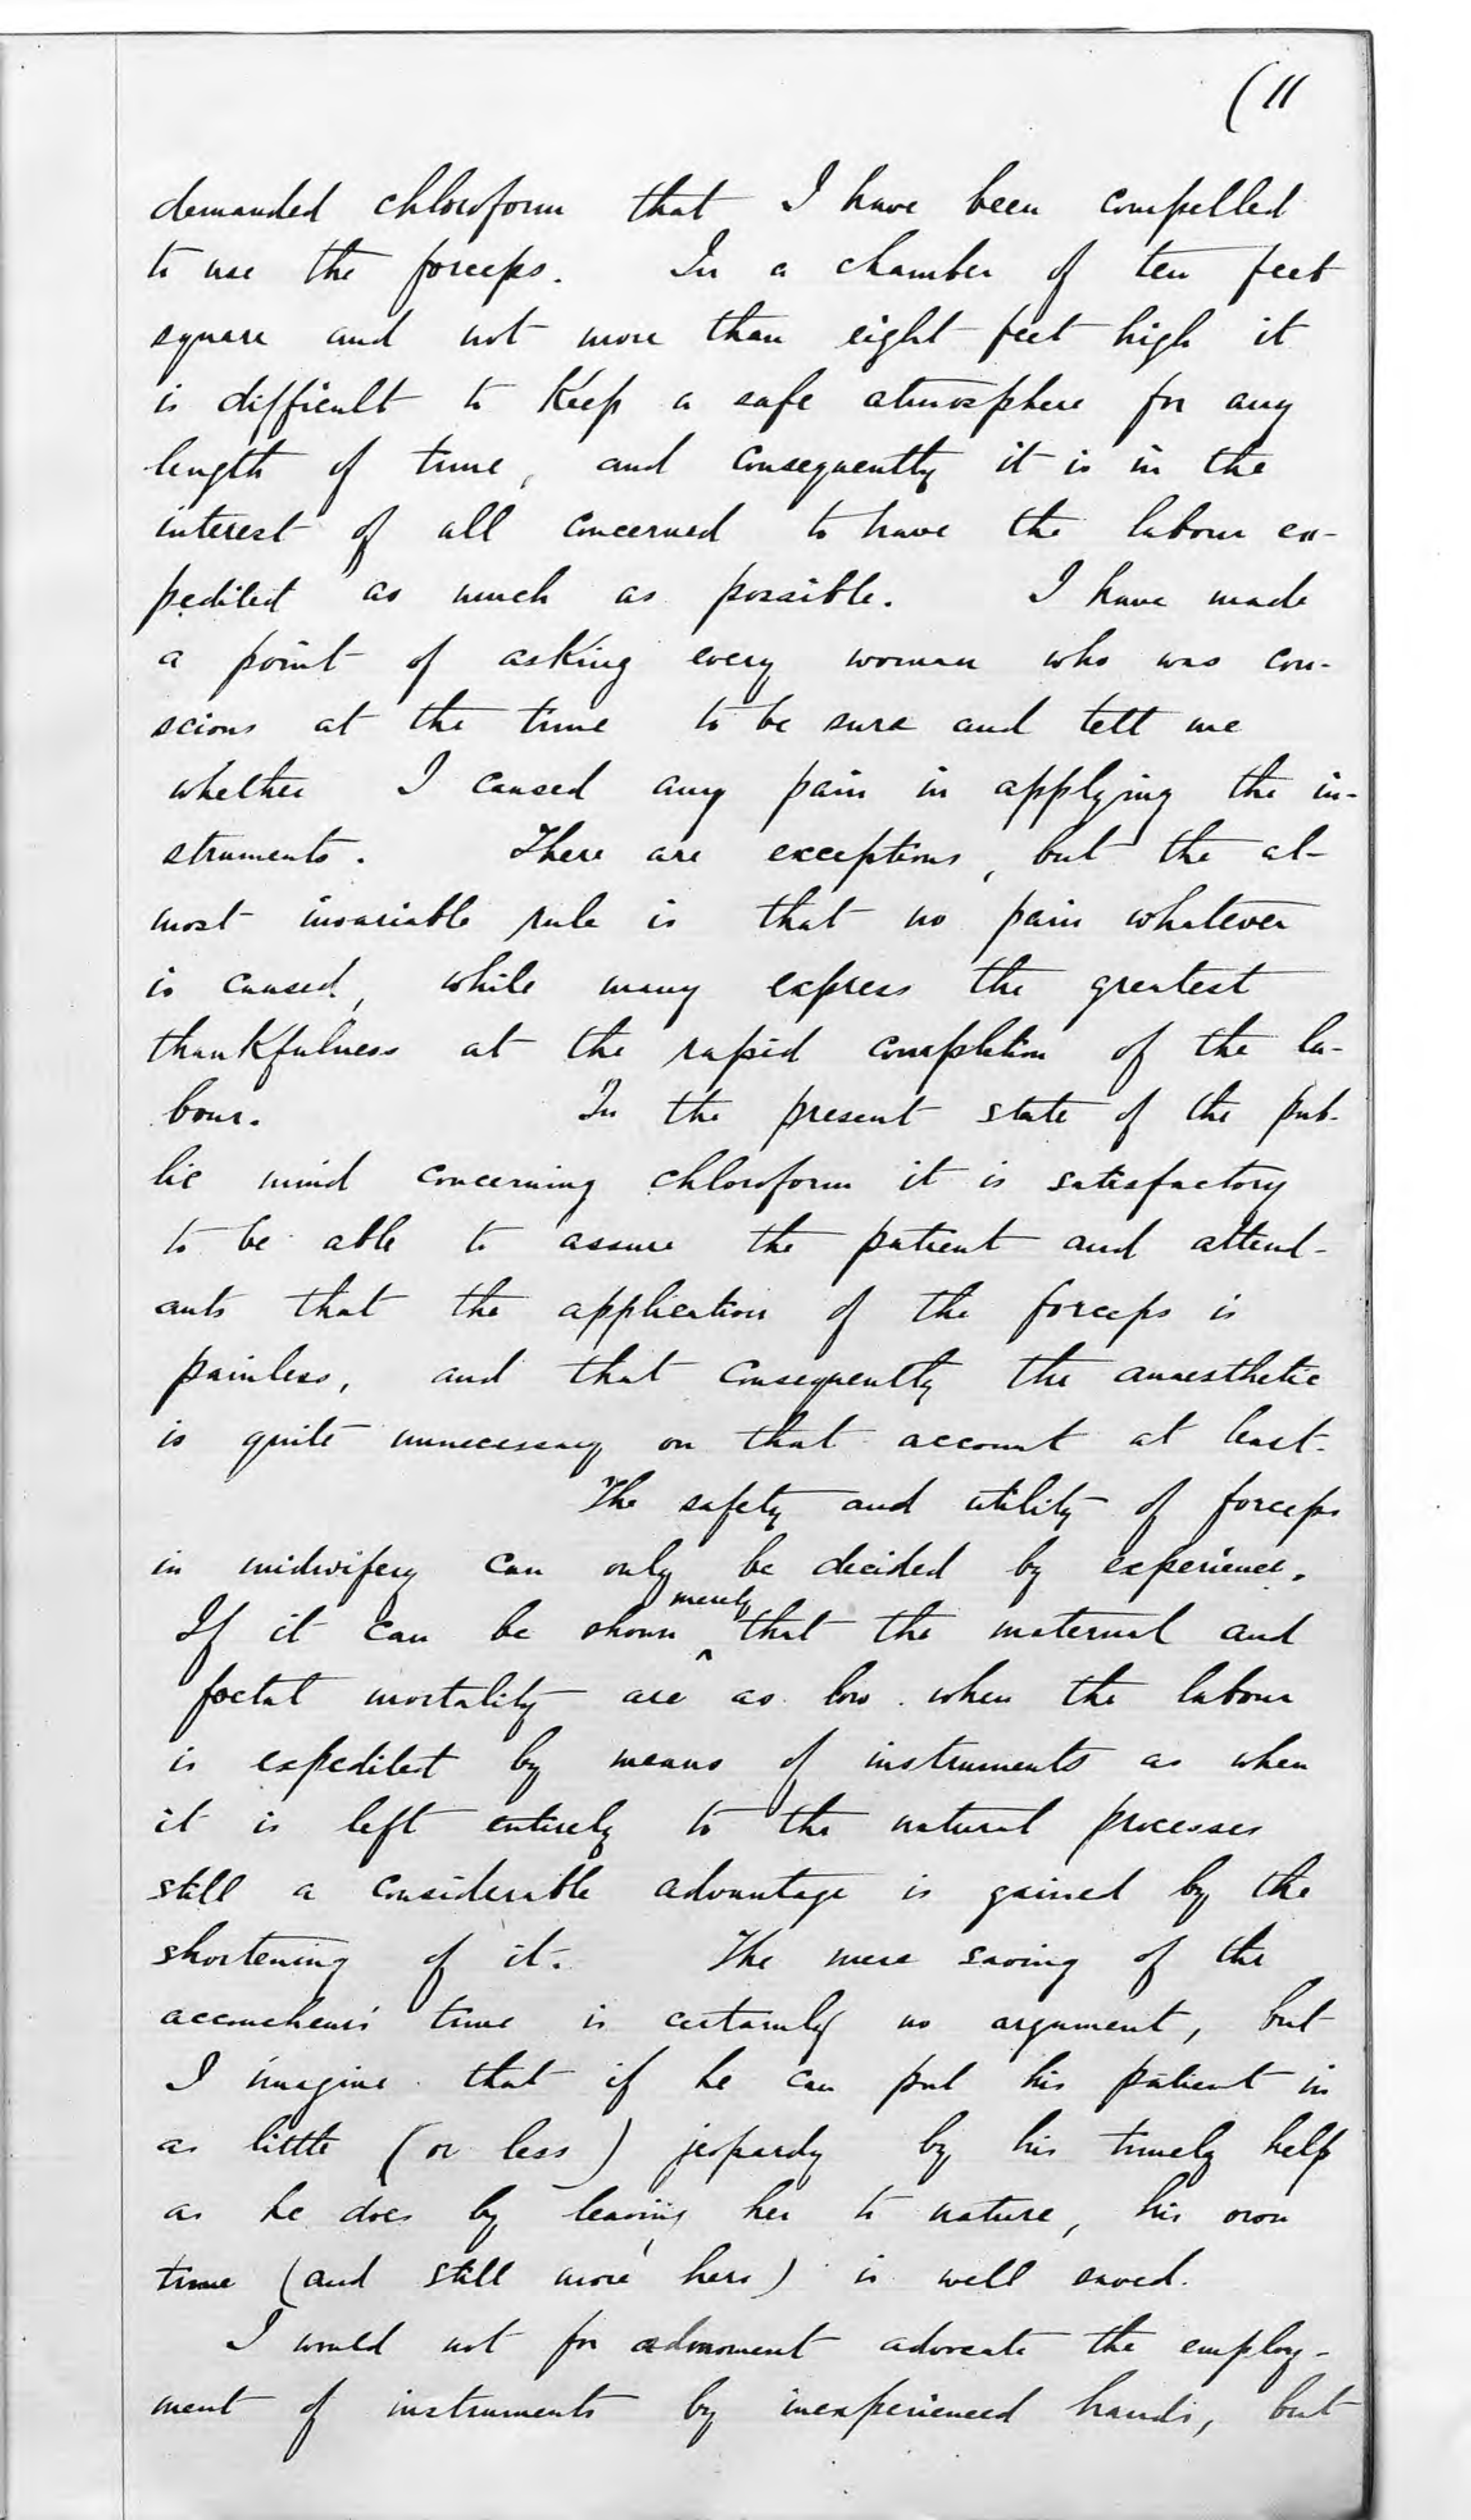 (11
demanded chloroform that I have been compelled
to use the forceps. In a chamber of ten feet
square and not more than eight feet high it
is difficult to keep a safe atmosphere for any
length of time, and consequently it is in the
interest of all concerned to have the labour ex-
pedited as much as possible. I have made
a point of asking every woman who was con-
scious at the time to be sure and tell me
whether I caused any pain in applying the in-
struments. There are exceptions, but the al-
most invariable rule is that no pain whatever
is caused, while many express the greatest
thankfulness at the rapid completion of the la-
bour. In the present state of the pub-
lic mind concerning chloroform it is satisfactory
to be able to assure the patient and attend-
ants that the application of the forceps is
painless, and that consequently the anaesthetic
is quite unnecessary on that account at least.
The safety and utility of forceps
in midwifery can only be decided by experience.
If it can be shown merely that the maternal and
foetal mortality are as low when the labour
is expedited by means of instruments as when
it is left entirely to the natural processes
still a considerable advantage is gained by the
shortening of it. The mere saving of the
accoucheur's time is certainly no argument, but
I imagine that if he can put his patient in
as little (or less) jeopardy by his timely help
as he does by leaving her to nature, his own
time (and still more hers) is well saved.
I would not for a moment advocate the employ-
ment of instruments by inexperienced hands, but